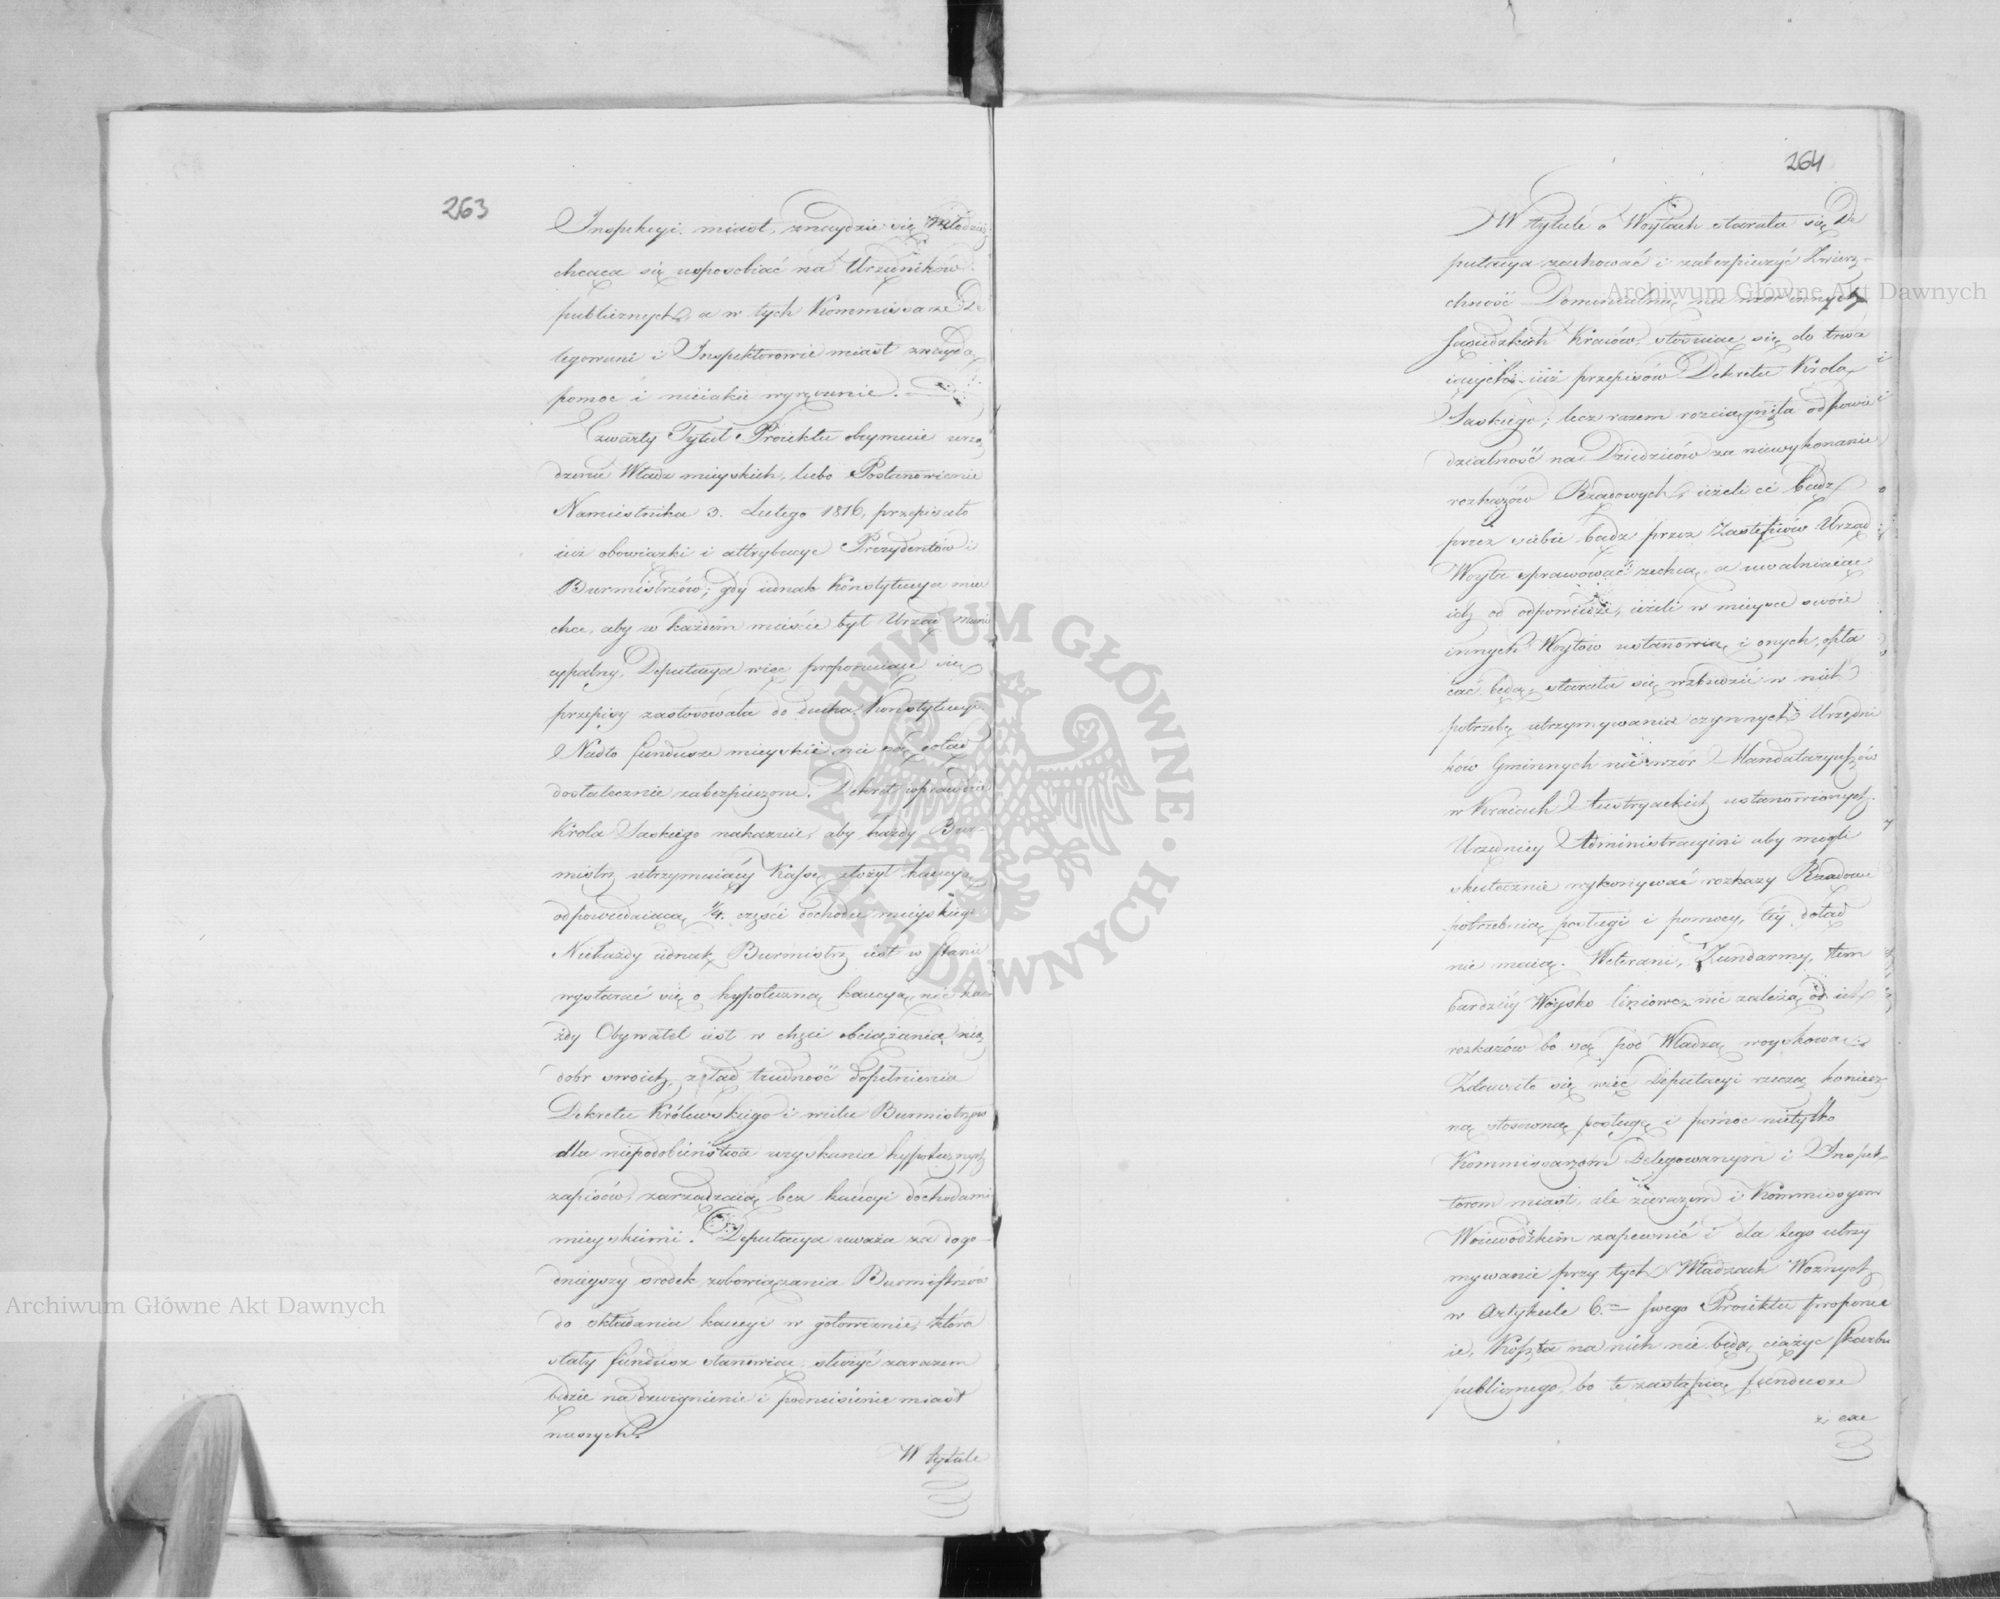 263
Inspekcyi miast, znaydzie się młodzież
chcąca się usposobiać na Urzędników
publicznych, a w tych Kommissarze De
legowani i Inspektorowie miast znaydą
pomoc i nieiakie wyręczenie.
Czwarty Tytuł Proiektu obeymuie urzą
dzenie Władz mieyskich, lubo Postanowienie
Namiestnika 3. Lutego 1816, przepisało
iuż obowiązki i attrybucye Prezydentów i
Burmistrzów; gdy iednak Konstytucya mieć
chce, aby w każdém mieście był Urząd muni
cypalny, Deputacya więc proponuiąc je
przepisy zastosowała do ducha Konstytucyi.
Nadto fundusze mieyskie nie są dotąd
dostatecznie zabezpieczone. Dekret wprawdzie
Króla Saskiego nakazuie, aby każdy Bur-
mistrz utrzymuiący Kassę złożył kaucyą
odpowiedaiącą 1/4. części dochodu mieyskiego
Niekażdy iednak Burmistrz iest w stanie
wystarać się o hypoteczną kaucyą, nie ka-
żdy Obywatel iest w chęci obciążania nią
dobr swoich, ztąd trudność dopełnienia
Dekretu Królewskiego i wielu Burmistrzów
dla niepodobieństwa uzyskania hypotecznych
zapisów, zarządzaią bez kaucyi dochodami
mieyskiemi. Deputacya uważa za dogo-
dnieyszy srodek zobowiązania Burmistrzów
do składania kaucyi w gotowiznie, która
stały fundusz stanowiąc, służyć zarazem
będzie na dzwignienie i podniesienie miast
naszych.
W tytule
264
W tytule o Woytach starała się De
putacya zachować i zabezpieczyć Zwierz-
chność Dominialną na wzór innych
sąsiedzkich Kraiów, stosuiąc się do trwa
iących iuż przepisów Dekretu Króla
Saskiego; lecz razem rozciągnęła odpowie
dzialność na Dziedziców za niewykonanie
rozkazów Rządowych, ieżeli ci bądź
przez siebie bądź przez Zastępców Urząd
Woyta sprawować zechcą, a uwalniaiąc
ich od odpowiedzi, ieżeli w mieysce swoie
innych Woytów ustanowią i onych opła
cać będą, starała się wzbudzić w nich
potrzebę utrzymywania czynnych Urzędni
kow Gminnych na wzór Mandataryuszów
w Kraiach Austryackich ustanowionych.
Urzędnicy Administracyini aby mogli
skutecznie wykonywać rozkazy Rządowe
potrzebuią posługi i pomocy, téy dotąd
nie maią. Weterani, Żandarmy, tém
bardziéy Woysko liniowe nie zależą od ich
rozkazów bo są pod Władzą woyskową.
Zdawało się więc Deputacyi rzeczą koniecz
ną stosowną posługę i pomoc nietylko
Kommissarzom Delegowanym i Inspek-
torom miast, ale zarazem i Kommissyom
Woiewódzkim zapewnić i dla tego utrzy
mywanie przy tych Władzach Woznych
w Artykule 6.m swego Proiektu proponu
ie. Koszta na nich nie będą ciążyć skarbu
publicznego, bo te zastąpią fundusze
z exe
Archiwum Główne Akt Dawnych
Archiwum Główne Akt Dawnych
ARCHIWUM GŁÓWNE AKT DAWNYCH